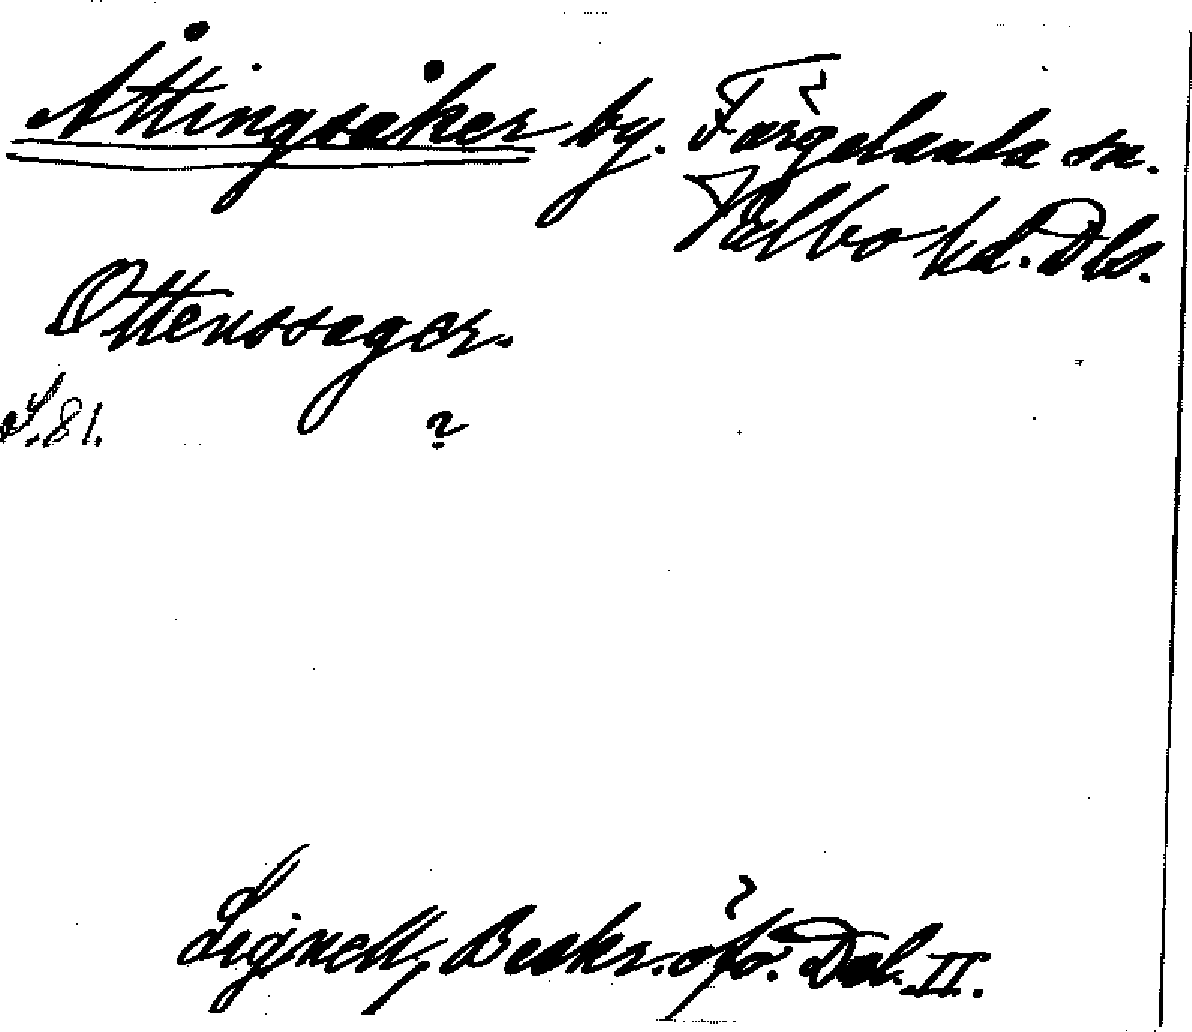 Åttingsåker by. Färgelanda sn.
Valbo hd. Dls.
Ottenssager.
S. 81. ?
Lignell, Beskr. öfv. Dal. II.